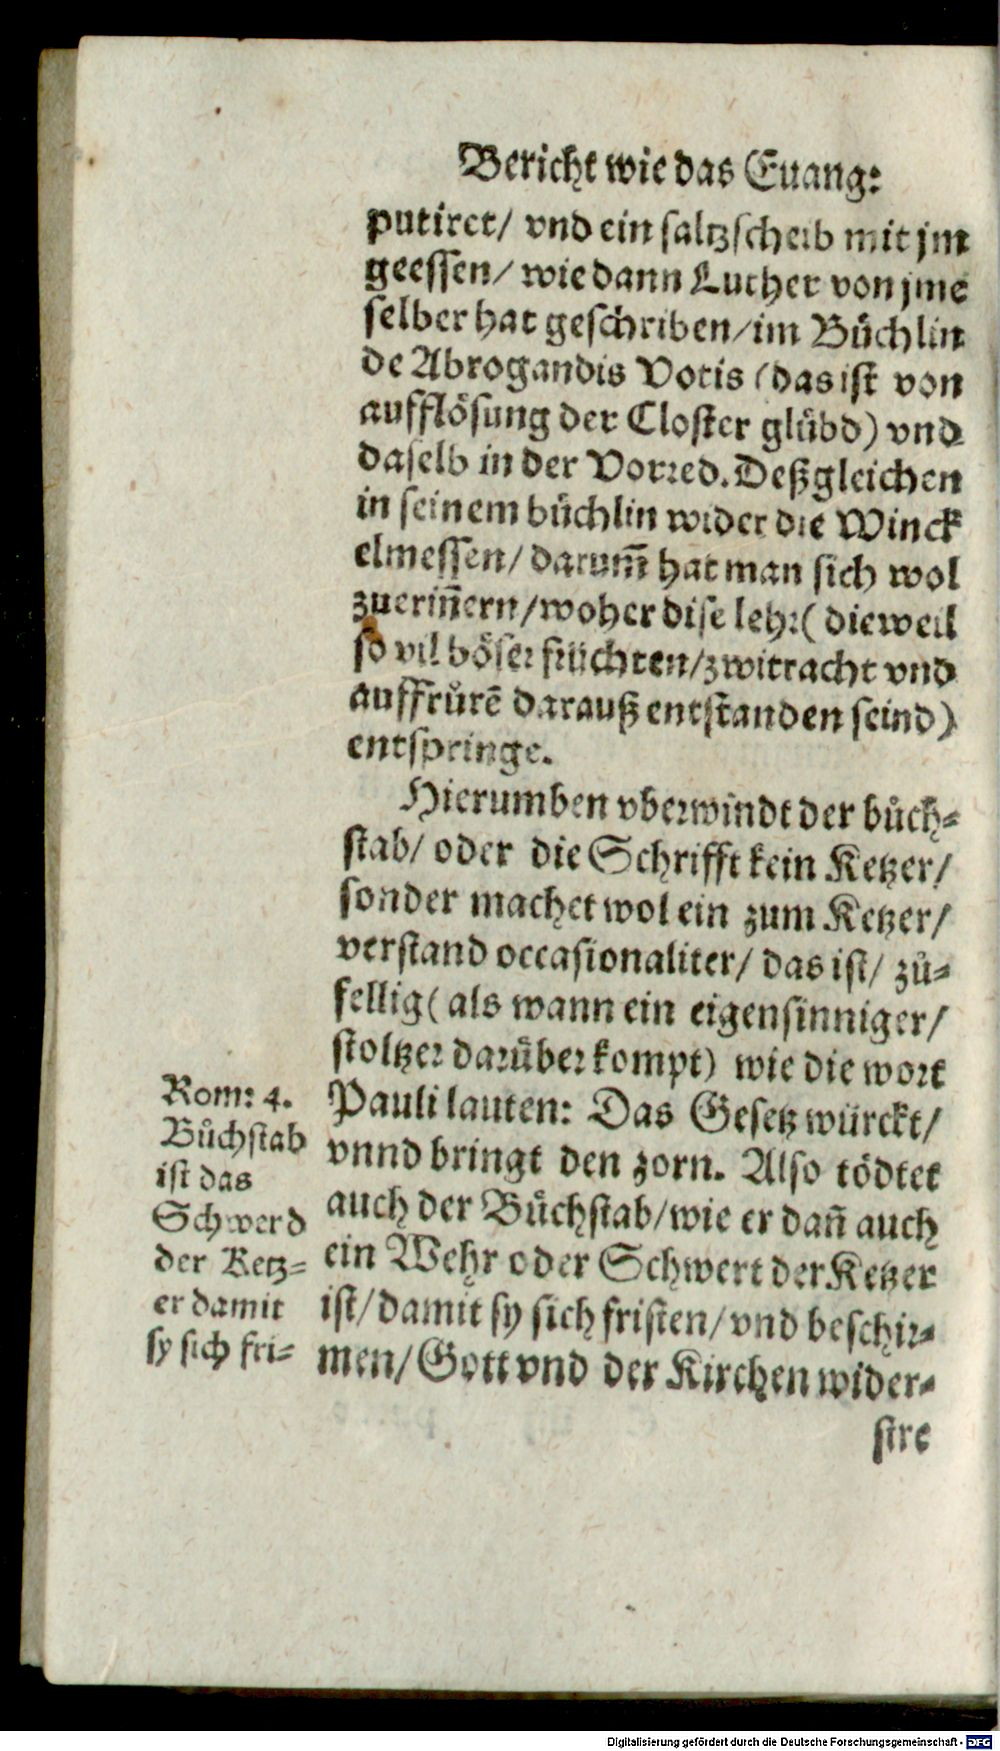 Bericht wie das Euang:
putiret/ vnd ein saltzscheib mit jm
geessen/ wie dann Luther von jme
selber hat geschriben/im Bůchlin
de Abrogandis Votis (das ist von
aufflösung der Closter glübd) vnd
daselb in der Vorred. Deßgleichen
in seinem bůchlin wider die Winck
elmessen/ darum̃ hat man sich wol
zuerin̄ern/woher dise lehr( dieweil
so vil böser früchten/zwitracht vnd
auffrůrē darauß entstanden seind)
entspringe.
Hierumben vberwindt der bůch-
stab/ oder die Schrifft kein Ketzer/
sonder machet wol ein zum Ketzer/
verstand occasionaliter/ das ist/ zů-
fellig( als wann ein eigensinniger/
stoltzer darüber kompt) wie die wort
Pauli lauten: Das Gesetz würckt/
vnnd bringt den zorn. Also tödtet
auch der Bůchstab/wie er dañ auch
ein Wehr oder Schwert der Ketzer
ist/damit sy sich fristen/vnd beschir-
men/Gott vnd der Kirchen wider-
stre
Rom: 4.
Bůchstab
ist das
Schwerd
der Ketz-
er damit
sy sich fri-
Digitalisierung gefördert durch die Deutsche Forschungsgemeinschaft - DFG